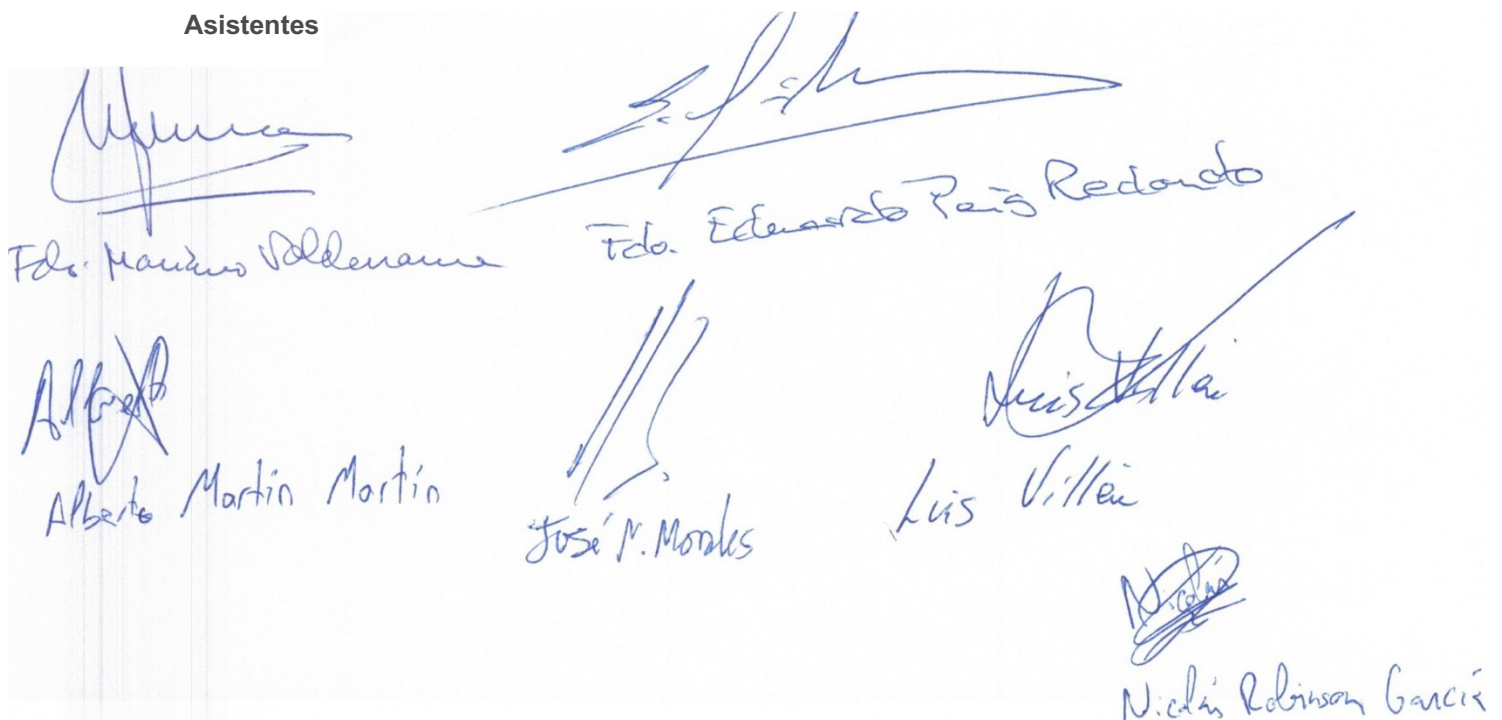 Asistentes
Fdo. Mariano Valderrama
Fdo. Eduardo Peis Redondo
Alberto
Alberto Martín Martín
José M. Morales
Luis Villén
Luis Villén
Nicolás
Nicolás Robinson García